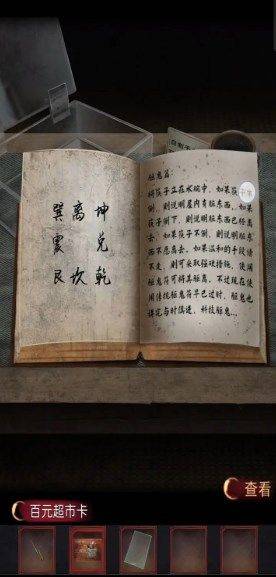 巽离坤
震 兑
艮坎乾
驱鬼篇:
将筷子立在水碗中,如果筷
倒,则说明屋内有脏东西,如果
筷子倒下,则说明脏东西已经离
去,如果筷子不倒,则说明脏东
西不愿离去,如果温和的手段请
不走,则可采取强硬措施,使用
驱鬼符可将其驱离,不过现在使
用传统驱鬼符早已过时,驱鬼也
讲究与时俱进,科技驱鬼...
查看
百元超市卡